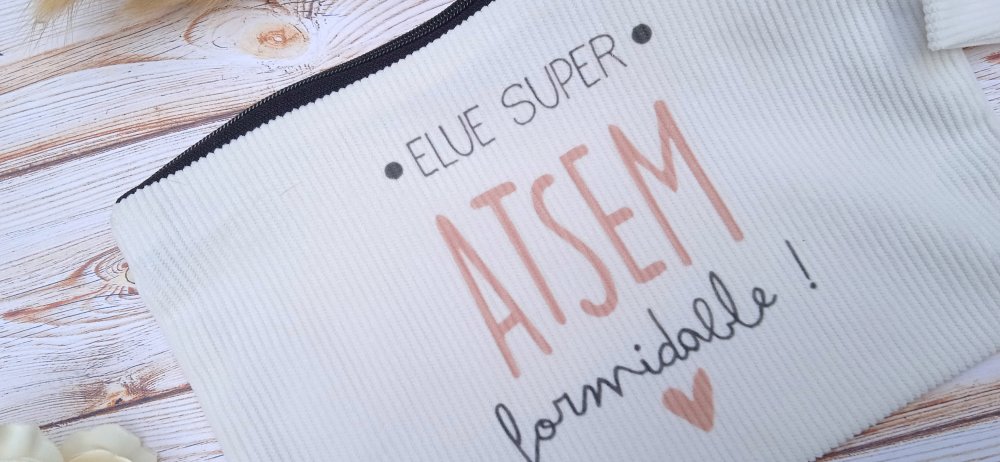 • ELUE SUPER •
ATSEM
formidable !